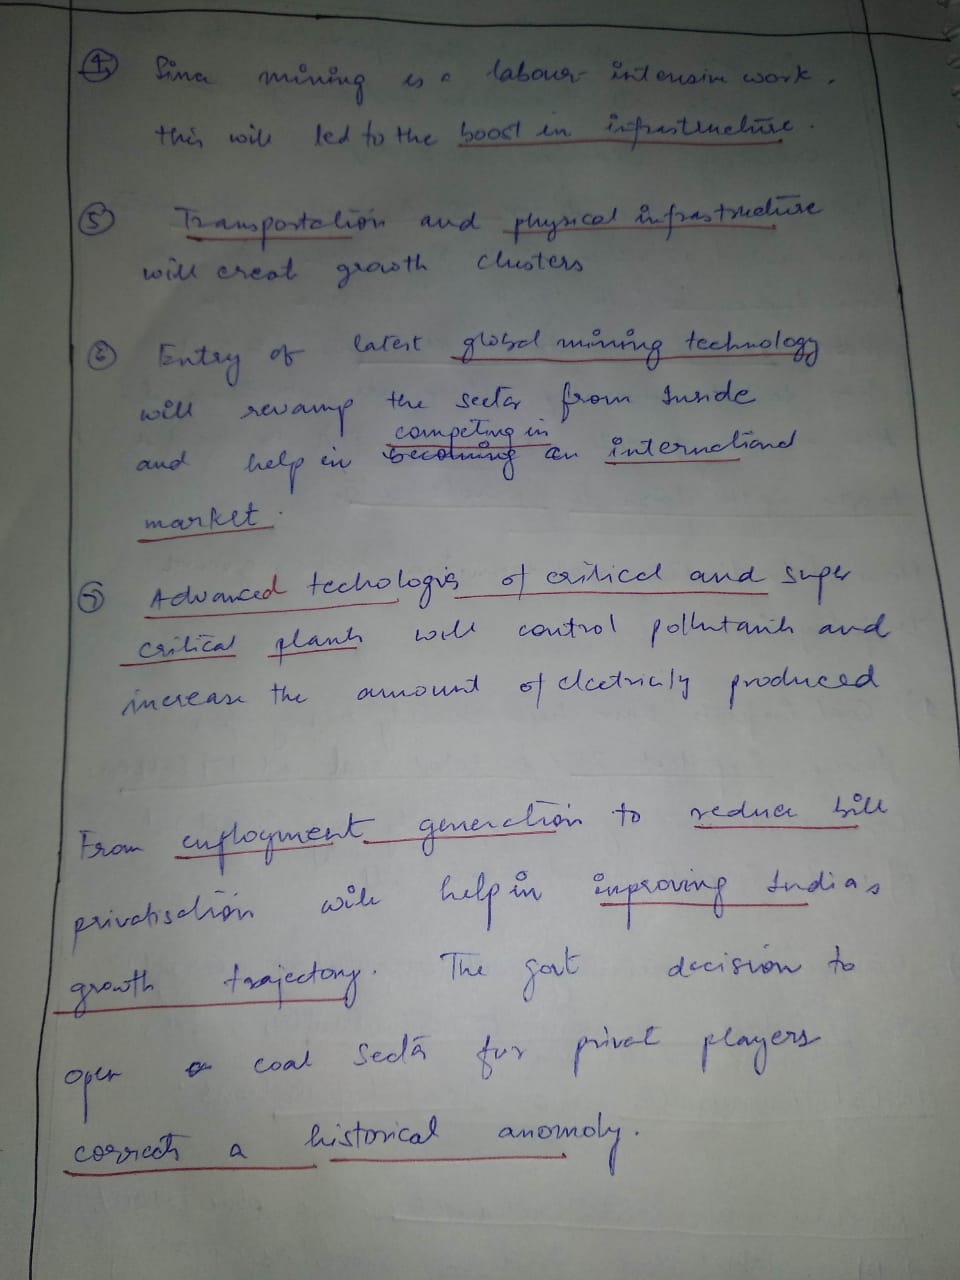 ④ Since mining is a labour intensive work.
this will led to the boost in infrastructure.
⑤ Transportation and physical infrastructure
will creat growth clusters
⑥ Entry of latest global mining technology
will revamp the sector from inside
competing in
and help in becoming an international
market.
⑦ Advanced techologis of critical and super
critical plants will control pollutants and
increase the amount of electricity produced
From employment generation to reduce bill
privatisation will help in improving India's
growth trajectory. The govt decision to
open coal sector for privat players
corrects a historical anomoly.